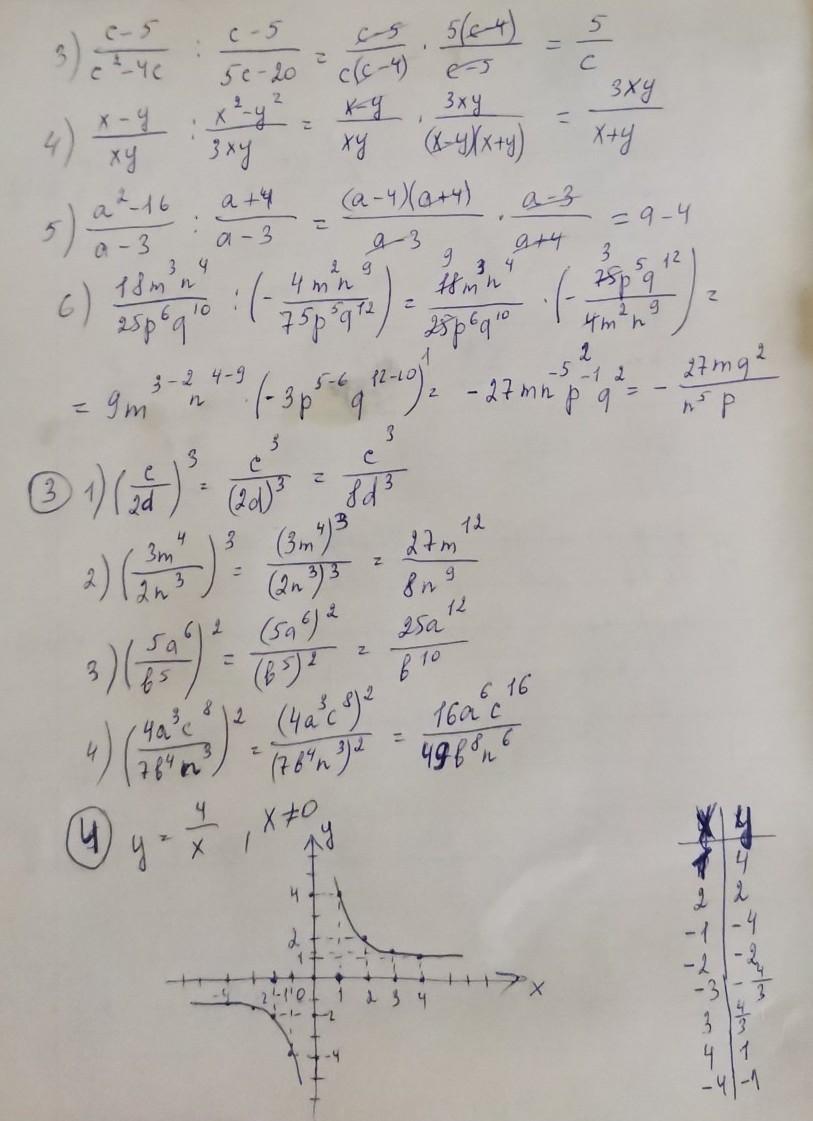 3) (c-5)/(c²-4c) : (c-5)/(5c-20) = (c-5)/(c(c-4)) · (5(c-4))/(c-5) = 5/c
4) (x-y)/(xy) : (x²-y²)/(3xy) = (x-y)/(xy) · (3xy)/((x-y)(x+y)) = (3xy)/(x+y)
5) (a²-16)/(a-3) : (a+4)/(a-3) = ((a-4)(a+4))/(a-3) · (a-3)/(a+4) = a-4
6) (18m³n⁴)/(25p⁶q¹⁰) : (-(4m²n⁹)/(75p⁵q¹²)) = (18m³n⁴)/(25p⁶q¹⁰) · (-(75p⁵q¹²)/(4m²n⁹)) =
= 9m³⁻²n⁴⁻⁹ · (-3p⁵⁻⁶q¹²⁻¹⁰) = -27mn⁻⁵p⁻¹q² = -(27mq²)/(n⁵p)
③ 1) (c/(2d))³ = c³/(2d)³ = c³/(8d³)
2) ((3m⁴)/(2n³))³ = (3m⁴)³/(2n³)³ = (27m¹²)/(8n⁹)
3) ((5a⁶)/(b⁵))² = (5a⁶)²/(b⁵)² = (25a¹²)/(b¹⁰)
4) ((4a³c⁸)/(7b⁴n³))² = (4a³c⁸)²/(7b⁴n³)² = (16a⁶c¹⁶)/(49b⁸n⁶)
④ y = 4/x, x≠0
y
4
2
1
-4 -2 -1 0 1 2 3 4 x
-2
-4
x y
1 4
2 2
-1 -4
-2 -2
-3 -4/3
3 4/3
4 1
-4 -1